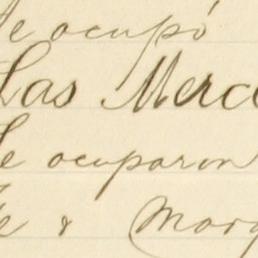 Se ocupó
Las Merce
Se ocuparon
& Marg